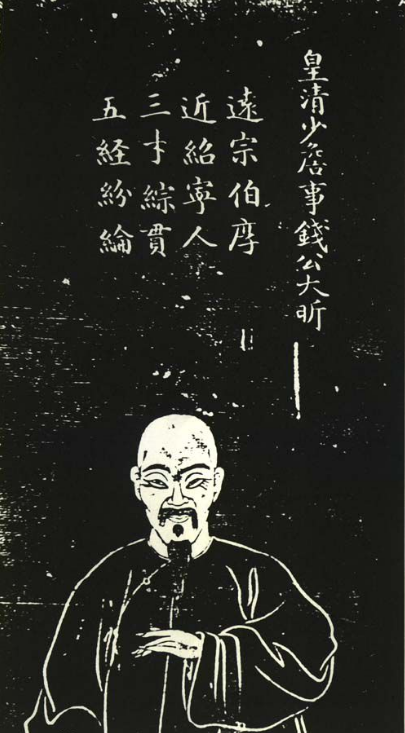 皇清少詹事錢公大昕
遠宗伯厚
近紹寧人
三才綜貫
五経紛綸